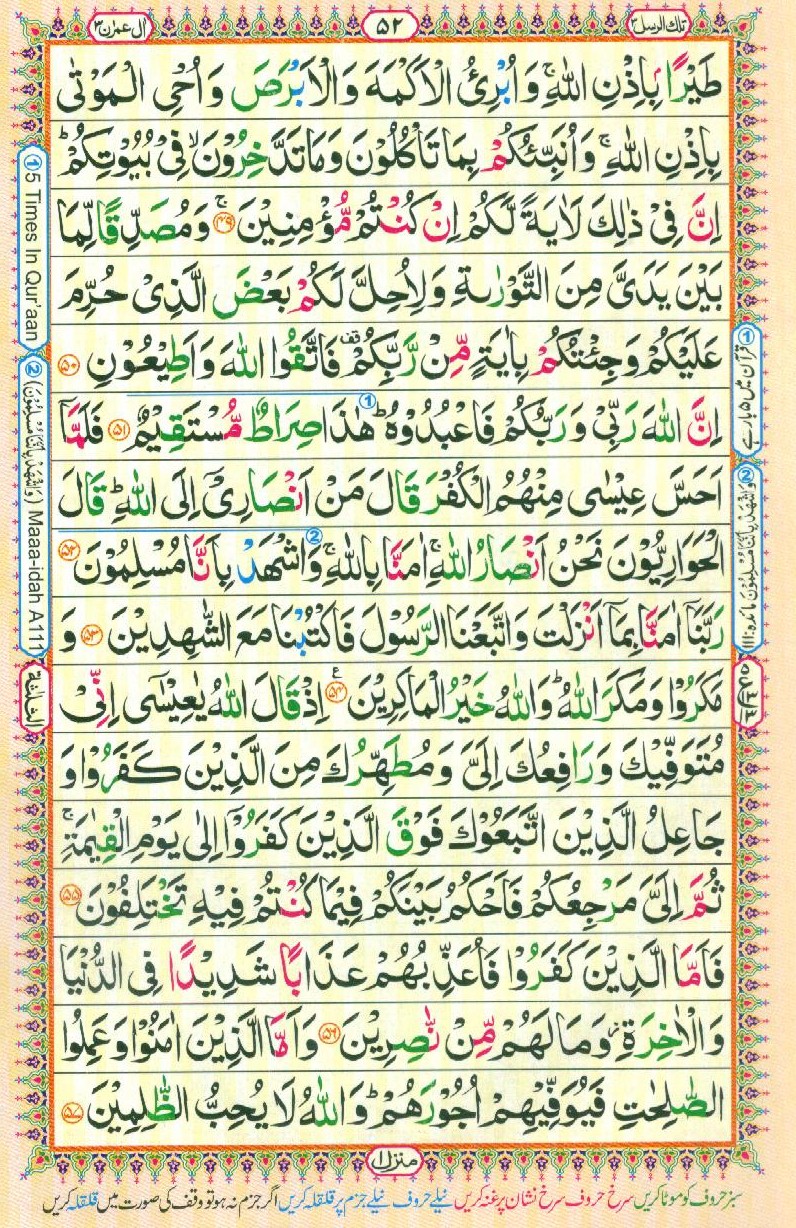 تلك الرسل ٣
۵۲
ال عمرٰن ۳
طَيْرًۢا بِاِذْنِ اللّٰهِۚ وَاُبْرِئُ الْاَكْمَهَ وَالْاَبْرَصَ وَاُحْيِ الْمَوْتٰى
بِاِذْنِ اللّٰهِۚ وَاُنَبِّئُكُمْ بِمَا تَاْكُلُوْنَ وَمَا تَدَّخِرُوْنَۙ فِيْ بُيُوْتِكُمْؕ
اِنَّ فِيْ ذٰلِكَ لَاٰيَةً لَّكُمْ اِنْ كُنْتُمْ مُّؤْمِنِيْنَۚ ۴۹ وَمُصَدِّقًا لِّمَا
بَيْنَ يَدَيَّ مِنَ التَّوْرٰىةِ وَلِاُحِلَّ لَكُمْ بَعْضَ الَّذِيْ حُرِّمَ
عَلَيْكُمْ وَجِئْتُكُمْ بِاٰيَةٍ مِّنْ رَّبِّكُمْ قف فَاتَّقُوا اللّٰهَ وَاَطِيْعُوْنِ ۵۰
اِنَّ اللّٰهَ رَبِّيْ وَرَبُّكُمْ فَاعْبُدُوْهُؕ ① هٰذَا صِرَاطٌ مُّسْتَقِيْمٌ ۵۱ فَلَمَّاۤ
اَحَسَّ عِيْسٰى مِنْهُمُ الْكُفْرَ قَالَ مَنْ اَنْصَارِيْۤ اِلَى اللّٰهِؕ قَالَ
الْحَوَارِيُّوْنَ نَحْنُ اَنْصَارُ اللّٰهِۚ اٰمَنَّا بِاللّٰهِۚ ② وَاشْهَدْ بِاَنَّا مُسْلِمُوْنَ ۵۲
رَبَّنَاۤ اٰمَنَّا بِمَاۤ اَنْزَلْتَ وَاتَّبَعْنَا الرَّسُوْلَ فَاكْتُبْنَا مَعَ الشّٰهِدِيْنَ ۵۳ وَ
مَكَرُوْا وَمَكَرَ اللّٰهُؕ وَاللّٰهُ خَيْرُ الْمَاكِرِيْنَ ۵۴ ع اِذْ قَالَ اللّٰهُ يٰعِيْسٰۤى اِنِّيْ
مُتَوَفِّيْكَ وَرَافِعُكَ اِلَيَّ وَمُطَهِّرُكَ مِنَ الَّذِيْنَ كَفَرُوْا وَ
جَاعِلُ الَّذِيْنَ اتَّبَعُوْكَ فَوْقَ الَّذِيْنَ كَفَرُوْۤا اِلٰى يَوْمِ الْقِيٰمَةِۚ
ثُمَّ اِلَيَّ مَرْجِعُكُمْ فَاَحْكُمُ بَيْنَكُمْ فِيْمَا كُنْتُمْ فِيْهِ تَخْتَلِفُوْنَ ۵۵
فَاَمَّا الَّذِيْنَ كَفَرُوْا فَاُعَذِّبُهُمْ عَذَابًا شَدِيْدًا فِي الدُّنْيَا
وَالْاٰخِرَةِؗ وَمَا لَهُمْ مِّنْ نّٰصِرِيْنَ ۵۶ وَاَمَّا الَّذِيْنَ اٰمَنُوْا وَعَمِلُوا
الصّٰلِحٰتِ فَيُوَفِّيْهِمْ اُجُوْرَهُمْؕ وَاللّٰهُ لَا يُحِبُّ الظّٰلِمِيْنَ ۵۷
① قرآن میں ۵ بار ہے
② وَاشْهَدْ بِاَنَّنَا مُسْلِمُوْنَ مائدہ:۱۱۱
① 5 Times In Qur'aan
② (وَاشْهَدْ بِاَنَّنَا مُسْلِمُوْنَ) Maaa-idah A111
الثلثة
منزل ۱
سبز حروف کو موٹا کریں سرخ حروف سرخ نشان پر غنہ کریں نیلے حروف نیلے جزم پر قلقلہ کریں اگر جزم نہ ہو تو وقف کی صورت میں قلقلہ کریں